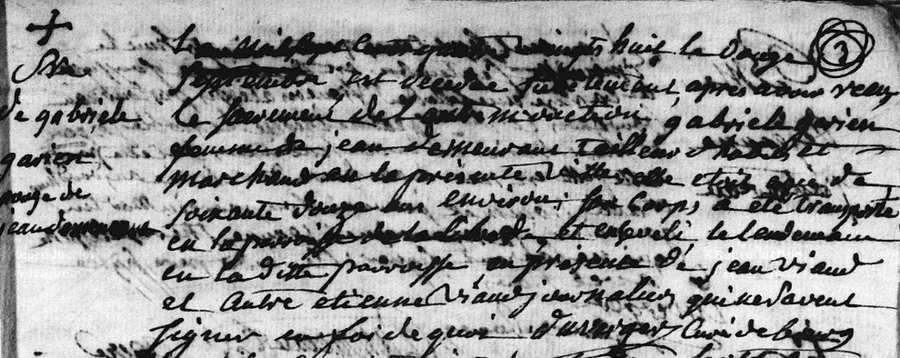 L'an mil sept cent quatre vingts huit le Douze
Septembre est decedée subitement, apres avoir recu
de gabriele
le sacrement de l'extreme onction gabriele garien
garien
femme de jean demeurant tailleur d'habits et
marchand en la presente ville, elle etoit agée de
soixante douze ans environ. son Corps a eté transporté
en la paroisse de et enseveli le lendemain
en la ditte parroisse, en presence de jean viaud
et autre etienne viaud journaliers qui ne savent
signer en foi de quoi Curé de